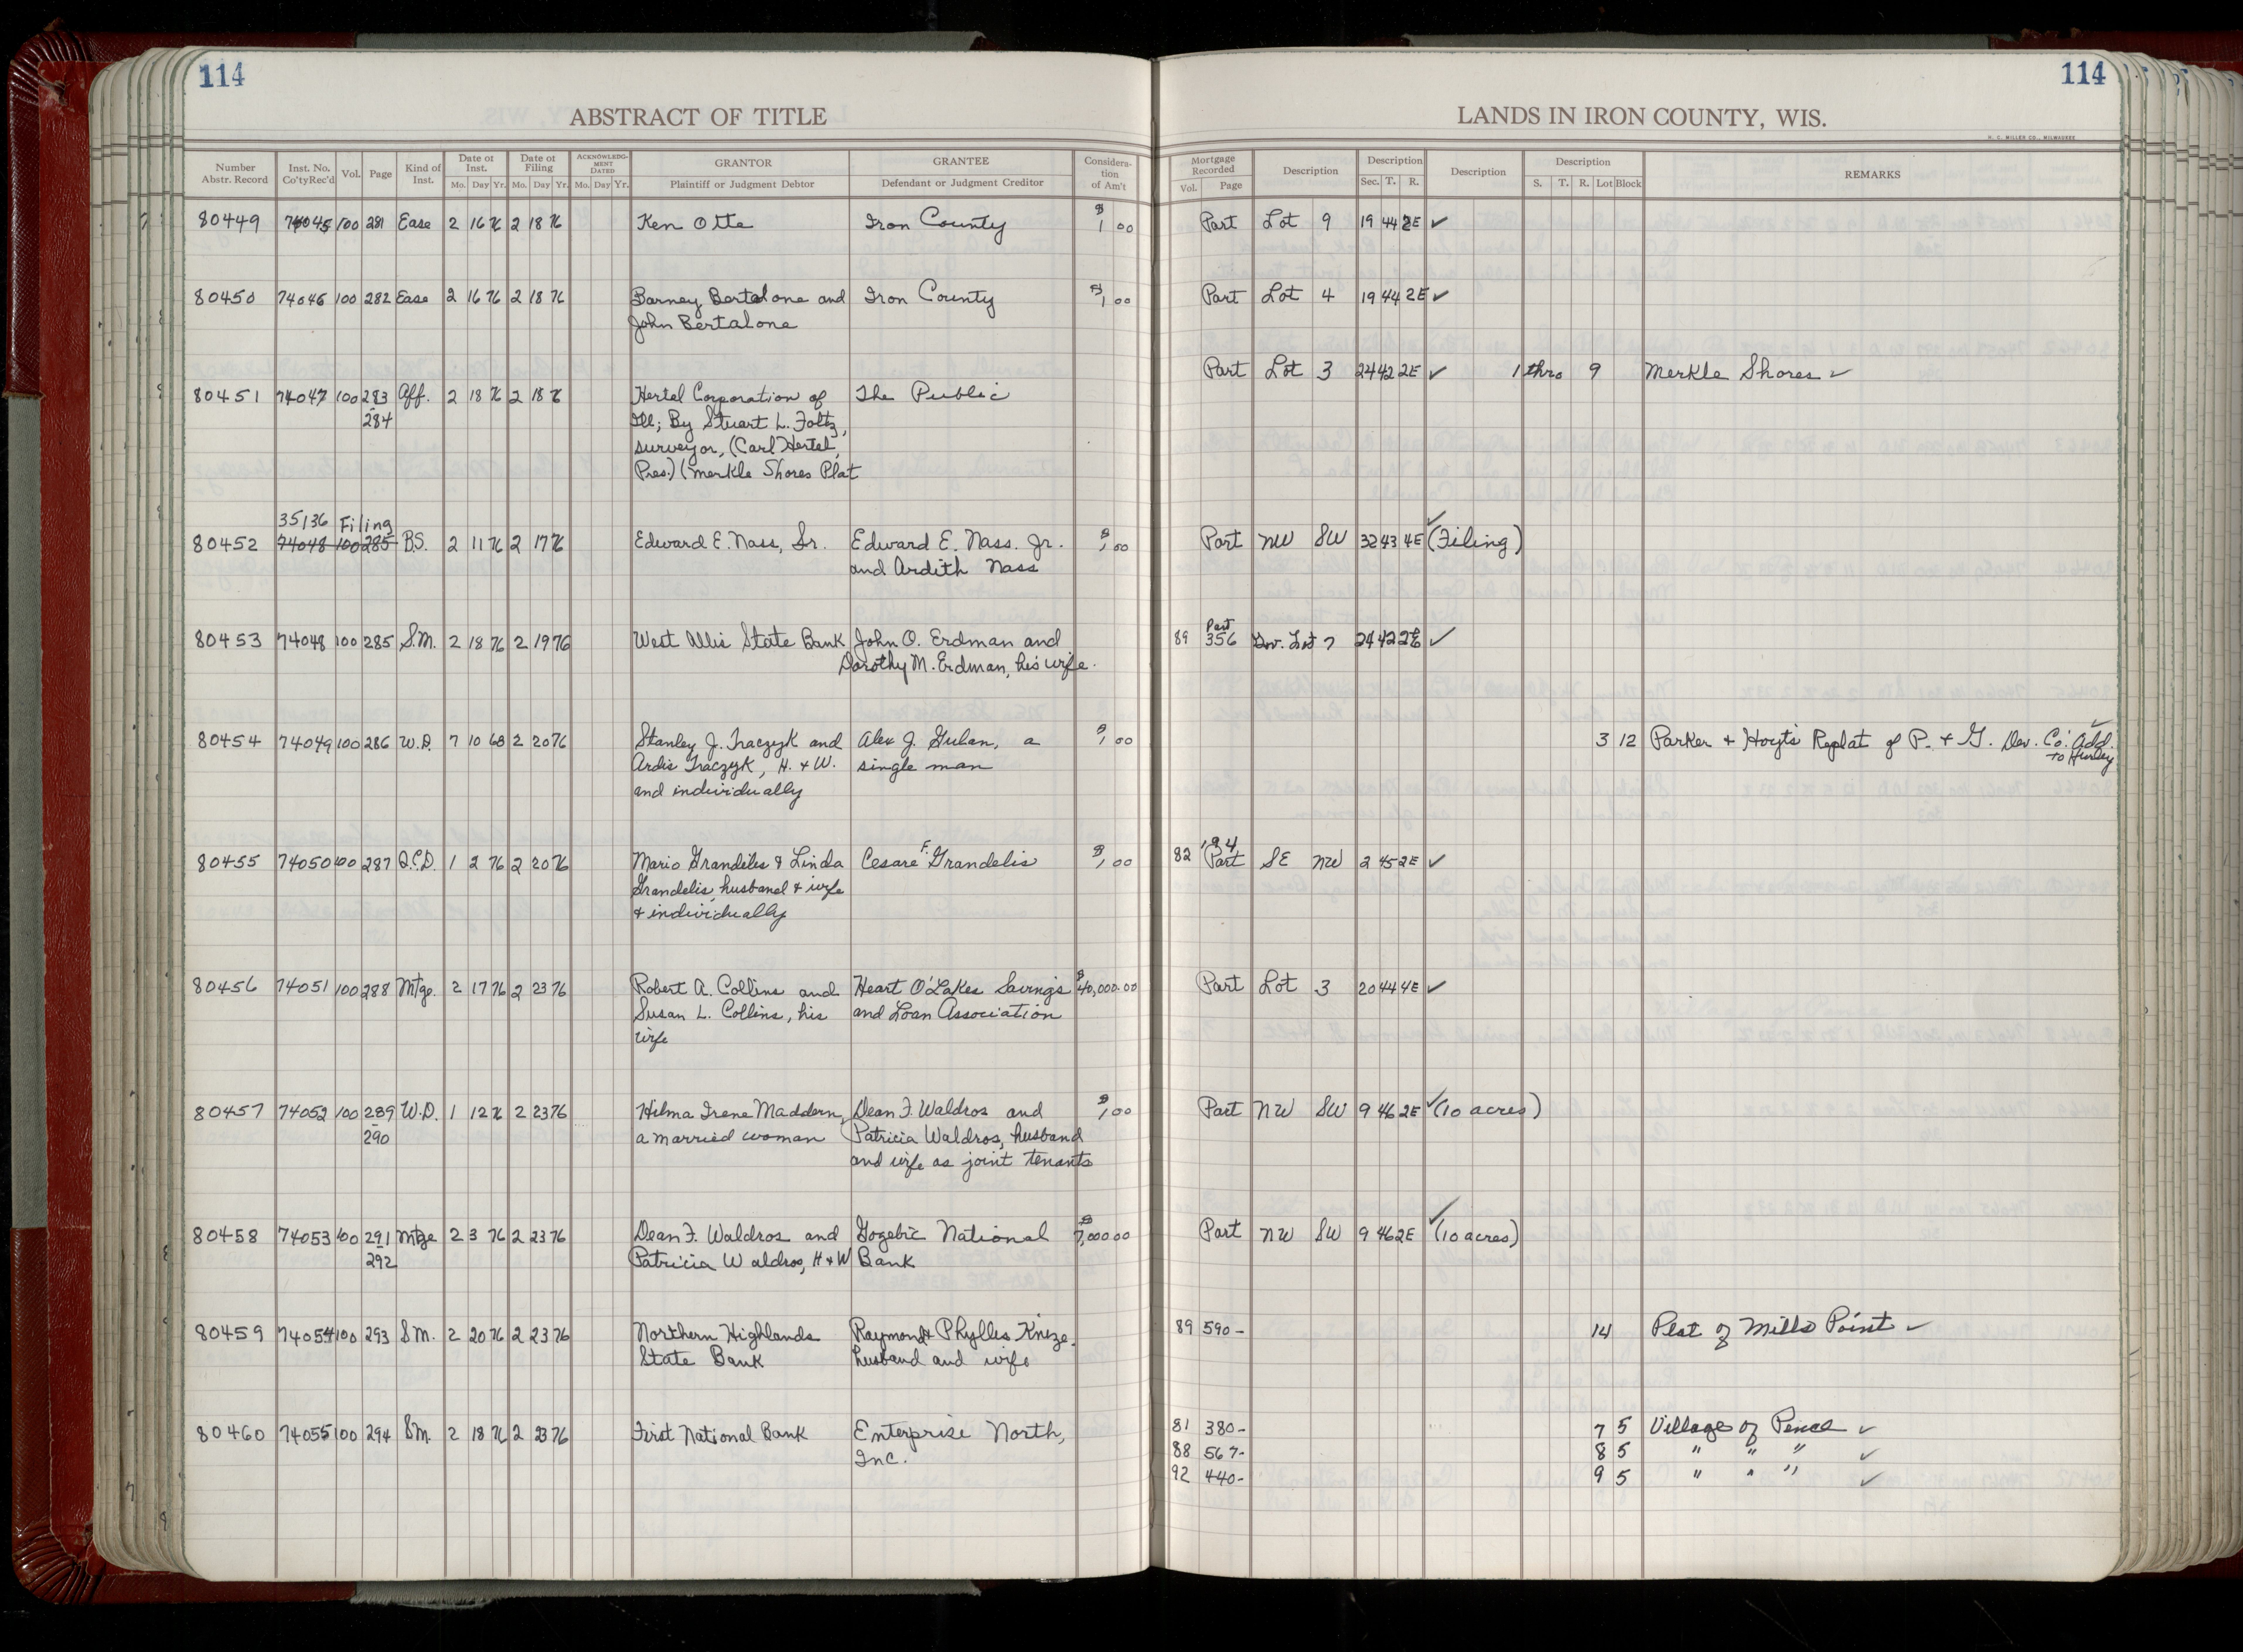 114
114
ABSTRACT OF TITLE
LANDS IN IRON COUNTY, WIS.
H. C. MILLER CO., MILWAUKEE
Number Abstr. Record Inst. No. Co'tyRec'd Vol. Page Kind of Inst. Date of Inst. Mo. Day Yr. Date of Filing Mo. Day Yr. ACKNOWLEDGMENT DATED Mo. Day Yr. GRANTOR Plaintiff or Judgment Debtor GRANTEE Defendant or Judgment Creditor Consideration of Am't Mortgage Recorded Vol. Page Description Description Sec. T. R. Description Description S. T. R. Lot Block REMARKS
80449 74045 100 281 Ease 2 16 76 2 18 76 Ken Otte Iron County $1 00 Part Lot 9 19 44 2E ✓
80450 74046 100 282 Ease 2 16 76 2 18 76 Barney Bertalone and Iron County $1 00 Part Lot 4 19 44 2E ✓
John Bertalone
Part Lot 3 24 42 2E ✓ 1 thro 9 Merkle Shores ✓
80451 74047 100 283 Aff. 2 18 76 2 18 76 Hertel Corporation of The Public
- 284 Ill; By Stuart L. Foltz,
surveyor, (Carl Hertel,
Pres.) (Merkle Shores Plat
35136 Filing
80452 74048 100 285 B.S. 2 11 76 2 17 76 Edward E. Nass, Sr. Edward E. Nass. Jr. $1 00 Part NW SW 32 43 4E ✓ (Filing)
and Ardith Nass
80453 74048 100 285 S.M. 2 18 76 2 19 76 West Allis State Bank John O. Erdman and 89 Part 356 Gov. Lot 7 24 42 2E ✓
Dorothy M. Erdman, his wife.
80454 74049 100 286 W.D. 7 10 68 2 20 76 Stanley J. Traczyk and Alex J. Guhan, a $1 00 3 12 Parker + Hoyt's Replat of P. + G. Dev. Co. Add. ✓
Ardis Traczyk, H. + W. single man to Hurley
and individually
80455 74050 100 287 Q.C.D. 1 2 76 2 20 76 Mario Grandelis & Linda Cesare F. Grandelis $1 00 82 194 Part SE NW 2 45 2E ✓
Grandelis, husband + wife
+ individually
80456 74051 100 288 Mtge. 2 17 76 2 23 76 Robert A. Collins and Heart O'Lakes Savings $40,000.00 Part Lot 3 20 44 4E ✓
Susan L. Collins, his and Loan Association
wife
80457 74052 100 289 W.D. 1 12 76 2 23 76 Hilma Irene Maddern, Dean F. Waldros and $1 00 Part NW SW 9 46 2E ✓ (10 acres)
- 290 a married woman Patricia Waldros, husband
and wife as joint tenants
80458 74053 100 291 Mtge 2 3 76 2 23 76 Dean F. Waldros and Gogebic National $7,000 00 Part NW SW 9 46 2E ✓ (10 acres)
- 292 Patricia Waldros, H + W Bank
80459 74054 100 293 S.M. 2 20 76 2 23 76 Northern Highlands Raymond + Phyllis Knize, 89 590 - 14 Plat of Mills Point ✓
State Bank husband and wife
80460 74055 100 294 S.M. 2 18 76 2 23 76 First National Bank Enterprise North, 81 380 - 7 5 Village of Pence ✓
Inc. 88 567 - 8 5 " " " ✓
92 440 - 9 5 " " " ✓